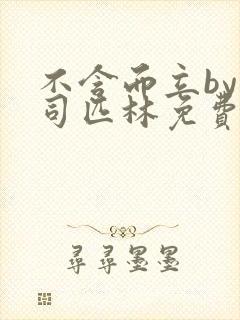 不言而立by
司匹林免费
寻寻墨墨